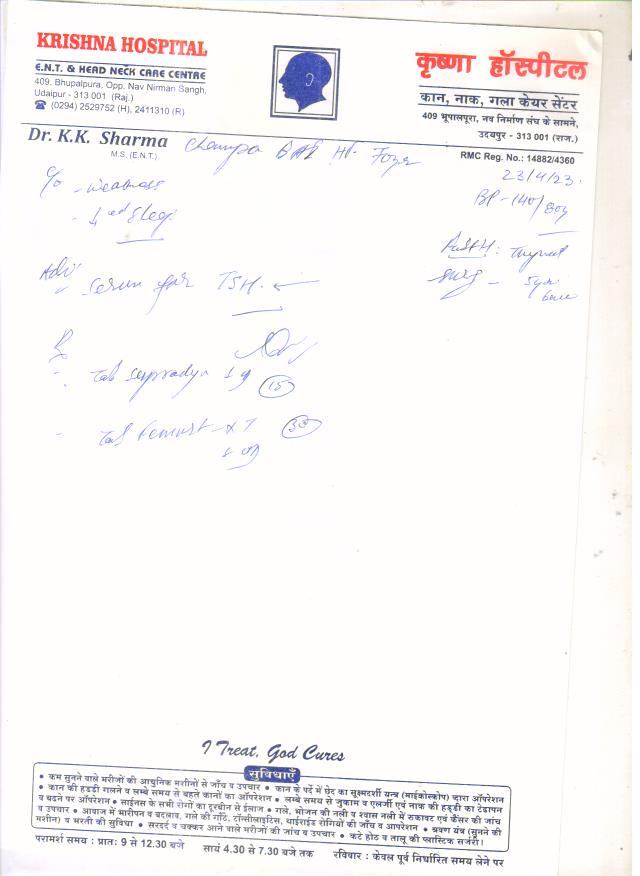 KRISHNA HOSPITAL
E.N.T. & HEAD NECK CARE CENTRE
409, Bhupalpura, Opp. Nav Nirman Sangh,
Udaipur - 313 001 (Raj.)
☎ (0294) 2529752 (H), 2411310 (R)
कृष्णा हॉस्पीटल
कान, नाक, गला केयर सेंटर
409 भूपालपुरा, नव निर्माण संघ के सामने,
उदयपुर - 313 001 (राज.)
Dr. K.K. Sharma
M.S. (E.N.T.)
RMC Reg. No.: 14882/4360
Champa
23/4/23
BP - 140/80
C/o - weakness
Adv
Serum for TSH
Rx
Tab 15
Tab 30
I Treat, God Cures
सुविधाएँ
• कम सुनने वाले मरीजों की आधुनिक मशीनों से जाँच व उपचार • कान के पर्दे में छेद का सूक्ष्मदर्शी यन्त्र (माईक्रोस्कोप) द्वारा ऑपरेशन
• कान की हडडी गालने व लम्बे समय से बहते कानों का ऑपरेशन • लम्बे समय से जुकाम व एलर्जी एवं नाक की हड्डी का टेढापन
व बढने पर ऑपरेशन • साईनस के सभी रोगों का दूरबीन से ईलाज • गले, भोजन की नली व श्वास नली में रुकावट एवं कैंसर की जांच
व उपचार • आवाज में भारीपन व बदलाव, गले की गाँठे, टॉन्सीलाइटिस, थाईराईड रोगियों की जाँच व आपरेशन • श्रवण यंत्र (सुनने की
मशीन) व भरती की सुविधा • सरदर्द व चक्कर आने वाले मरीजों की जांच व उपचार • कटे होठ व तालू की प्लास्टिक सर्जरी।
परामर्श समय : प्रातः 9 से 12.30 बजे सायं 4.30 से 7.30 बजे तक रविवार : केवल पूर्व निर्धारित समय लेने पर